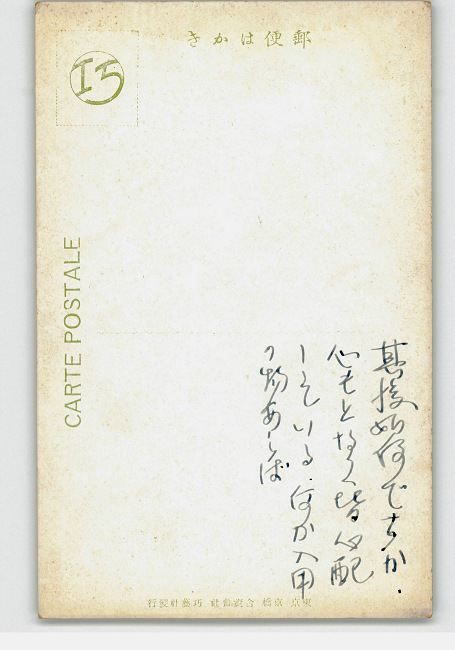 郵便はがき
CARTE POSTALE
其後如何ですか.
心もとなく皆心配
している.何か入用
の物あれば
東京 京橋 合資會社 巧藝社發行